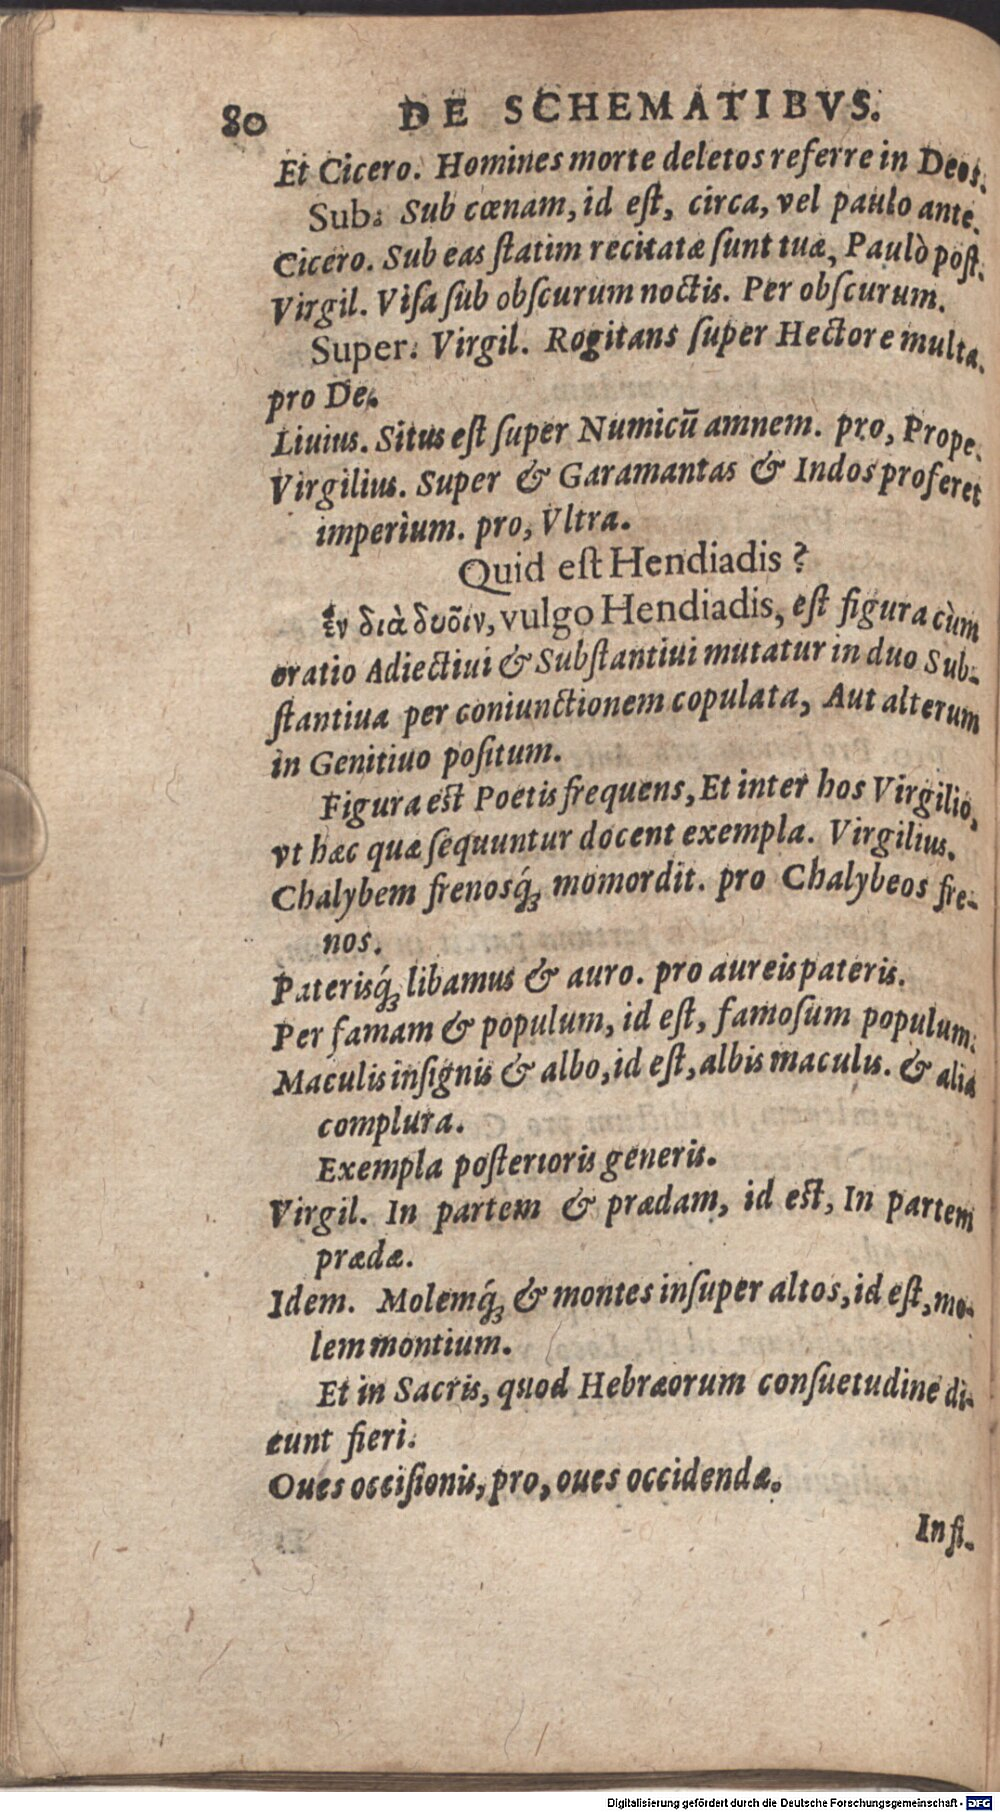 80 DE SCHEMATIBVS.
Et Cicero. Homines morte deletos referre in Deos.
Sub. Sub cœnam, id eſt, circa, vel paulo ante.
Cicero. Sub eas ſtatim recitatæ ſunt tuæ, Paulò poſt.
Virgil. Viſa ſub obſcurum noctis. Per obſcurum.
Super. Virgil. Rogitans ſuper Hectore multa.
pro De.
Liuius. Situs eſt ſuper Numicū amnem. pro, Prope.
Virgilius. Super & Garamantas & Indos proferet
imperium. pro, Vltra.
Quid eſt Hendiadis?
ἓν διὰ δυοῖν, vulgo Hendiadis, eſt figura cùm
oratio Adiectiui & Subſtantiui mutatur in duo Sub-
ſtantiua per coniunctionem copulata, Aut alterum
in Genitiuo poſitum.
Figura eſt Poetis frequens, Et inter hos Virgilio,
vt hæc quæ ſequuntur docent exempla. Virgilius.
Chalybem frenosq́ꝫ momordit. pro Chalybeos fre-
nos.
Paterisq́ꝫ libamus & auro. pro aureis pateris.
Per famam & populum, id eſt, famoſum populum.
Maculis inſignis & albo, id eſt, albis maculis. & alia
complura.
Exempla poſterioris generis.
Virgil. In partem & prædam, id eſt, In partem
prædæ.
Idem. Molemq́ꝫ & montes inſuper altos, id eſt, mo-
lem montium.
Et in Sacris, quod Hebræorum conſuetudine di-
cunt fieri.
Oues occiſionis, pro, oues occidendæ.
In ſi-
Digitalisierung gefördert durch die Deutsche Forschungsgemeinschaft - DFG